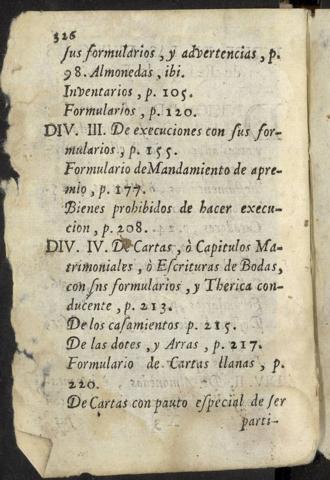 326
sus formularios, y advertencias, p.
98. Almonedas, ibi.
Inventarios, p. 105.
Formularios, p. 120.
DIV. III. De execuciones con sus for-
mularios, p. 155.
Formulario de Mandamiento de apre-
mio, p. 177.
Bienes prohibidos de hacer execu-
cion, p. 208.
DIV. IV. De Cartas, ò Capitulos Ma-
trimoniales, ò Escrituras de Bodas,
con sns formularios, y Therica con-
ducente, p. 213.
De los casamientos p. 215.
De las dotes, y Arras, p. 217.
Formulario de Cartas llanas, p.
220.
De Cartas con pauto especial de ser
parti-